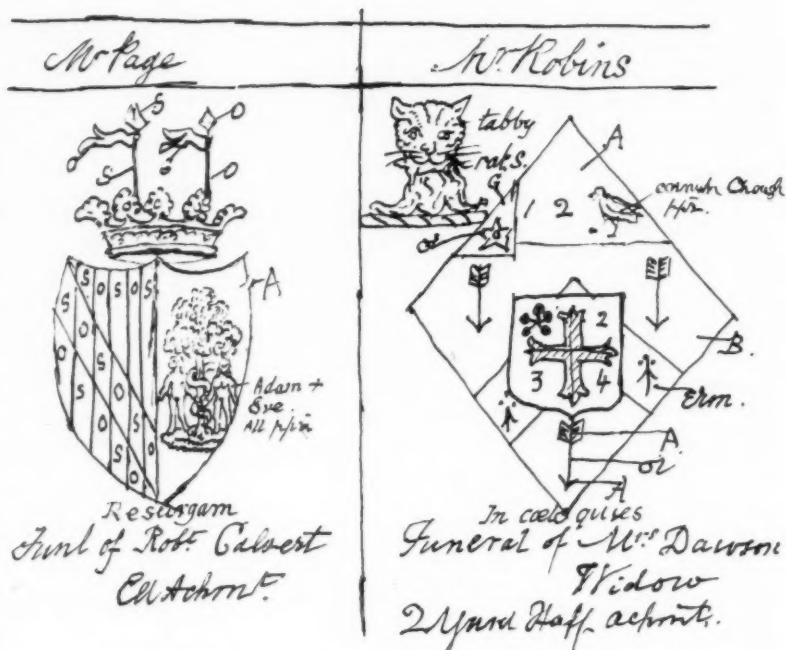 Mr Page
S
O
O
S
O
A
S O S O S
O
S
O
S
O
S
O
S
Adam +
Eve
All ppr
Resurgam
Funl of Robt. Calvert
Ell Achmt.
Mr. Robins
tabby
cats.
G
or
A
1 2
cornish Chough
ppr.
2
3 4
B.
Erm.
A
or
A
In cœlo quies
Funeral of Mrs Dawson
Widow
2 Yard Haff achmt.